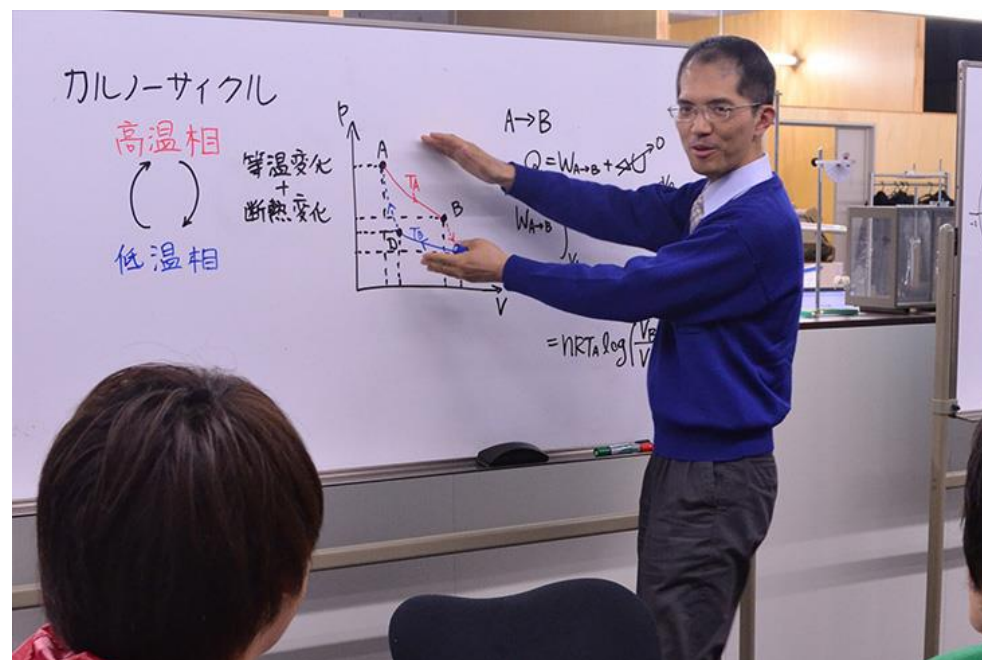 カルノーサイクル
高温相
低温相
等温変化
+
断熱変化
P
A
TA
B
D
TB
V
A→B
Q=WA→B+ΔU 0
WA→B
=nRTA log(VB
V